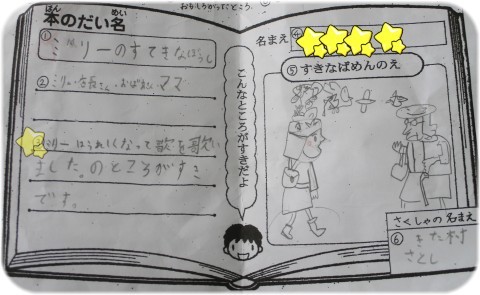 おもしろかったところ
ほん めい
本のだい名
① ミリーのすてきなぼうし
② ミリー・店長さん・おばあさん ママ
③ ミリーはうれしくなって歌を歌い
ました。のところがすき
です。
こんなところがすきだよ
名まえ ④
⑤ すきなばめんのえ
さくしゃの名まえ
⑥ きた村
さとし